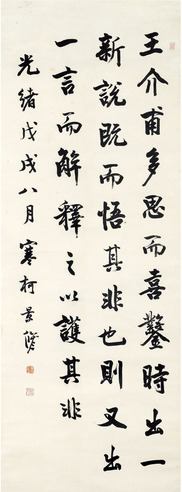 王介甫多思而喜鑿時出一
新說既而悟其非也則又出
一言而解釋之以護其非
光緒戊戌八月寒柯